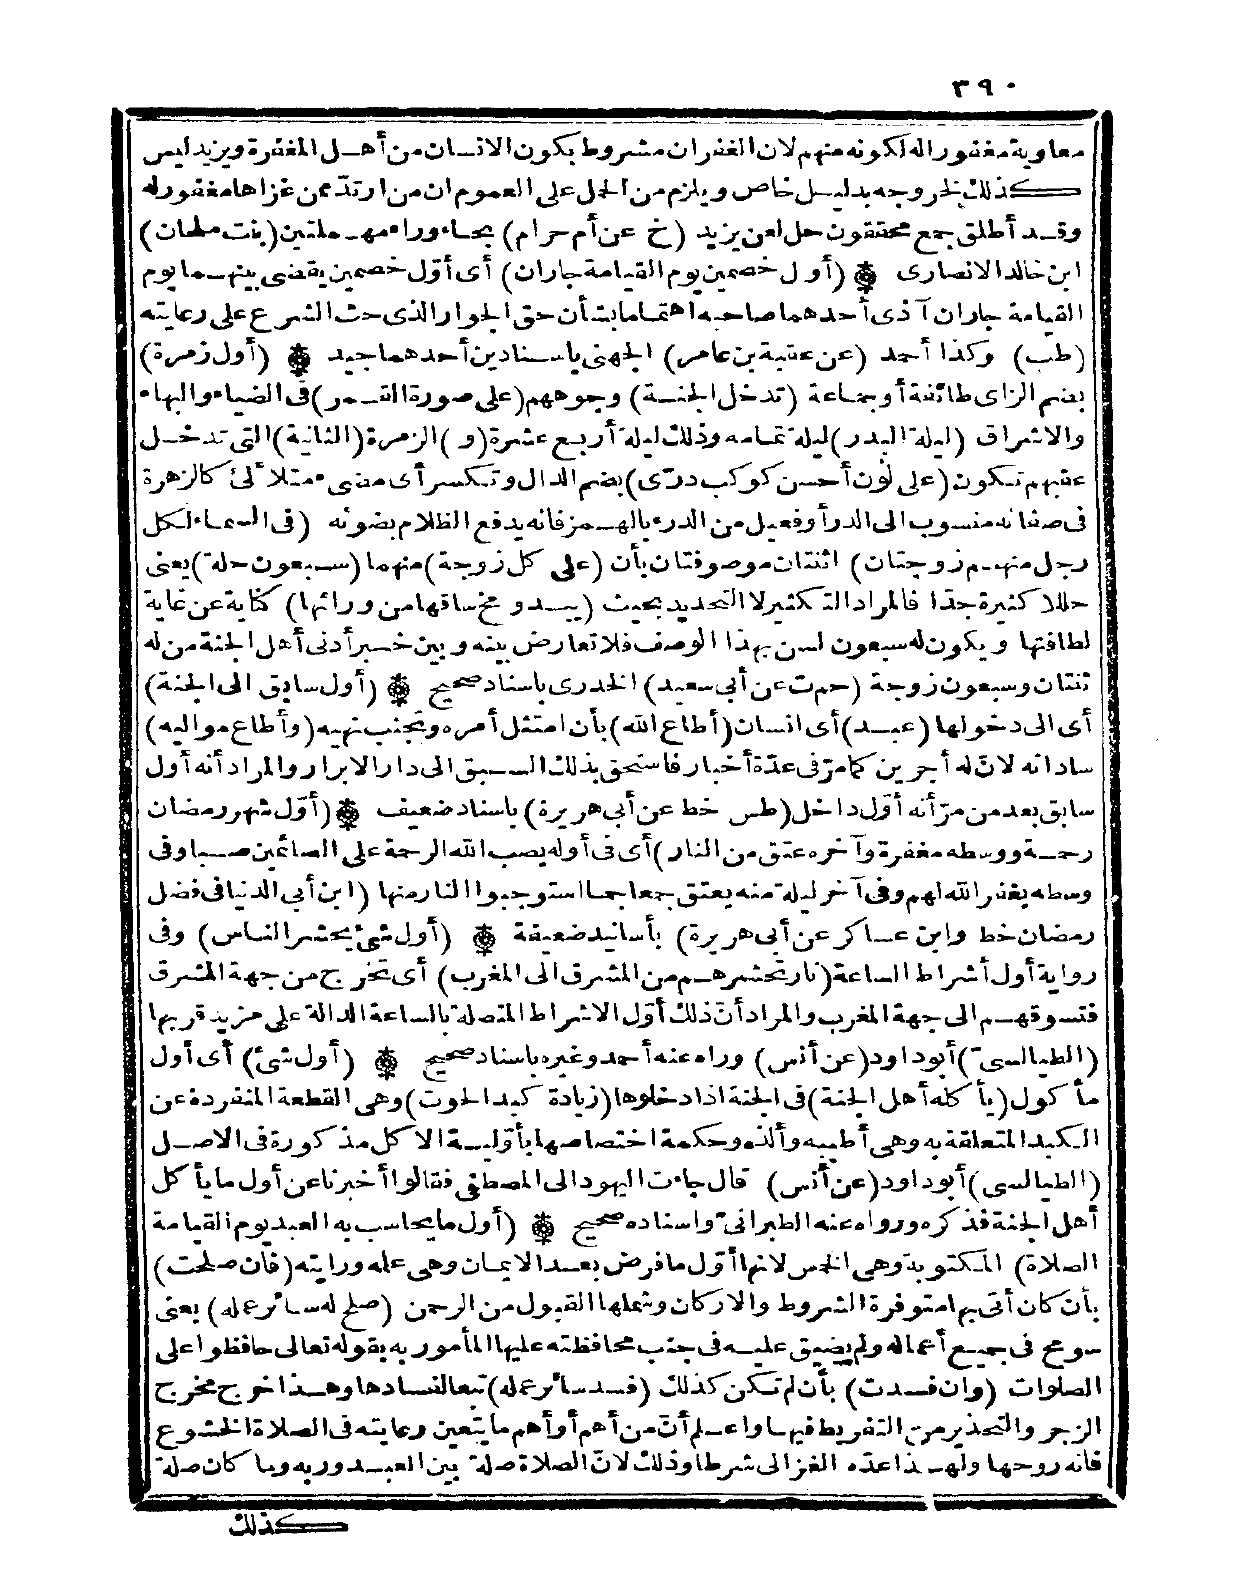 ٣٩٠
معاوية مغفورا له لكونه منهم لان الغفران مشروط بكون الانسان من أهل المغفرة ويزيد ليس
كذلك لخروجه بدليل خاص ويلزم من الحمل على العموم ان من ارتد ممن غزاها مغفور له
وقد أطلق جمع محققون حل لعن يزيد (خ عن أم حرام) بحاء وراء مهملتين (بنت ملحان)
ابن خالد الانصارى ۞ (أول خصمين يوم القيامة جاران) أى أوّل خصمين يقضى بينهما يوم
القيامة جاران آذى أحدهما صاحبه اهتماما بشأن حق الجوار الذى حث الشرع على رعايته
(طب) وكذا أحمد (عن عقبة بن عامر) الجهنى باسنادين أحدهما جيد ۞ (أول زمرة)
بضم الزاى طائفة أو جماعة (تدخل الجنة) وجوههم (على صورة القمر) فى الضياء والبهاء
والاشراق (ليلة البدر) ليلة تمامه وذلك ليلة أربع عشرة (و) الزمرة (الثانية) التى تدخل
عقبهم تكون (على لون أحسن كوكب درّى) بضم الدال وتكسر أى مضى ء متلا ٔلئ كالزهرة
فى صفائه منسوب الى الدر أو فعيل من الدرء بالهمز فانه يدفع الظلام بضوئه (فى السماء لكل
رجل منهم زوجتان) اثنتان موصوفتان بأن (على كل زوجة) منهما (سبعون حلة) يعنى
حللا كثيرة جدّا فالمراد التكثير لا التحديد بحيث (يبدو مخ ساقها من ورائها) كناية عن غاية
لطافتها ويكون له سبعون لسن بهذا الوصف فلا تعارض بينه وبين خبر أدنى أهل الجنة من له
ثنتان وسبعون زوجة (حم ت عن أبى سعيد) الخدرى باسناد صحيح ۞ (أول سابق الى الجنة)
أى الى دخولها (عبد) أى انسان (أطاع الله) بأن امتثل أمره وتجنب نهيه (وأطاع مواليه)
ساداته لانّ له أجرين كما مرّ فى عدّة أخبار فاستحق بذلك السبق الى دار الابرار والمراد أنه أول
سابق بعد من مرّ أنه أوّل داخل (طس خط عن أبى هريرة) باسناد ضعيف ۞ (أوّل شهر رمضان
رحمة ووسطه مغفرة وآخره عتق من النار) أى فى أوله يصب الله الرحمة على الصائمين صبا وفى
وسطه يغفر الله لهم وفى آخر ليلة منه يعتق جمعا جما استوجبوا النار منها (ابن أبى الدنيا فى فضل
رمضان خط وابن عساكر عن أبى هريرة) بأسانيد ضعيفة ۞ (أول شئ يحشر الناس) وفى
رواية أول أشراط الساعة (نار تحشرهم من المشرق الى المغرب) أى تخرج من جهة المشرق
فتسوقهم الى جهة المغرب والمراد أنّ ذلك أوّل الاشراط المتصلة بالساعة الدالة على مزيد قربها
(الطيالسىّ) أبو داود (عن أنس) ورواه عنه أحمد وغيره باسناد صحيح ۞ (أول شئ) أى أول
مأكول (يأكله أهل الجنة) فى الجنة اذا دخلوها (زيادة كبد الحوت) وهى القطعة المنفردة عن
الكبد المتعلقة به وهى أطيبه وألذه وحكمة اختصاصها بأوّلية الاكل مذكورة فى الاصل
(الطيالسى) أبو داود (عن أنس) قال جاءت اليهود الى المصطفى فقالوا أخبرنا عن أول ما يأكل
أهل الجنة فذكره ورواه عنه الطبرانىّ واسناده صحيح ۞ (أول ما يحاسب به العبد يوم القيامة
الصلاة) المكتوبة وهى الخمس لانها أوّل ما فرض بعد الايمان وهى علمه ورايته (فان صلحت)
بأن كان أتى بها متوفرة الشروط والاركان وشملها القبول من الرحمن (صلح له سائر عمله) يعنى
سومح فى جميع أعماله ولم يضيق عليه فى جنب محافظته عليها المأمور به بقوله تعالى حافظوا على
الصلوات (وان فسدت) بأن لم تكن كذلك (فسد سائر عمله) تبعا لفسادها وهذا خرج مخرج
الزجر والتحذير من التفريط فيها واعلم أنّ من أهم أو أهم ما يتعين رعايته فى الصلاة الخشوع
فانه روحها ولهذا عدّه الغزالى شرطا وذلك لانّ الصلاة صلة بين العبد وربه وما كان صلة
كذلك